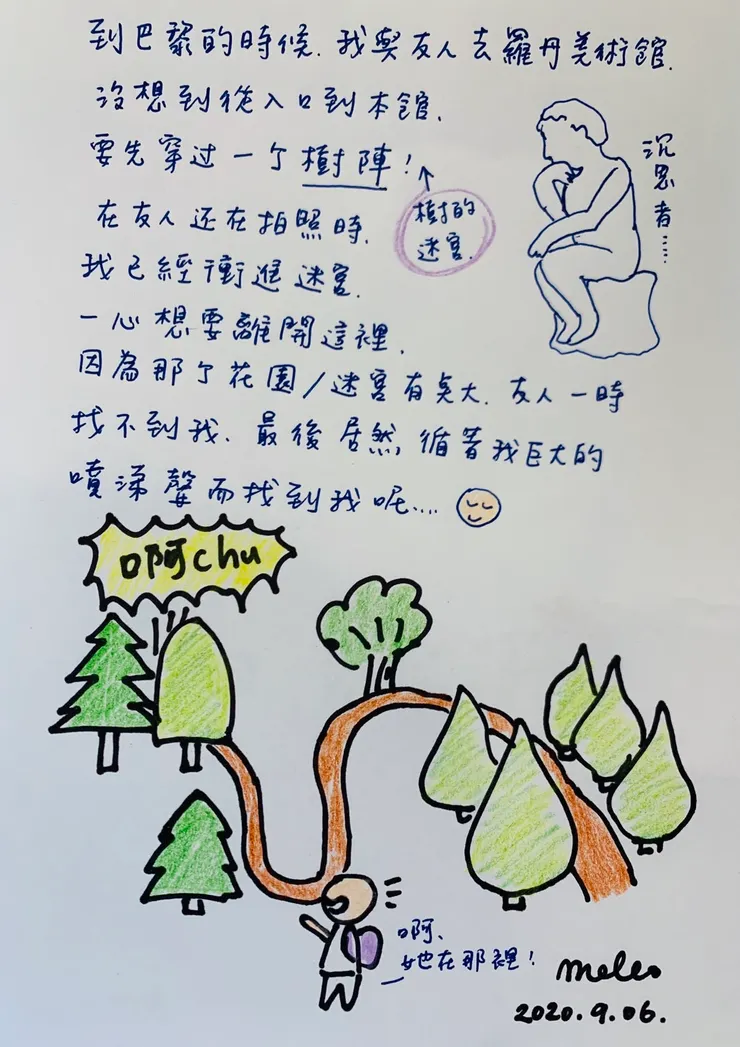 到巴黎的時候.我與友人去羅丹美術館.
沒想到從入口到本館.
要先穿过一个樹陣！
樹的
迷宮.
沉思者……
在友人还在拍照時.
我已經衝進迷宮.
一心想要離開這裡.
因為那个花園/迷宮有點大.友人一時
找不到我.最後居然,循著我巨大的
噴涕聲而找到我呢....
啊chu
啊、
她在那裡！
meles
2020.9.06.